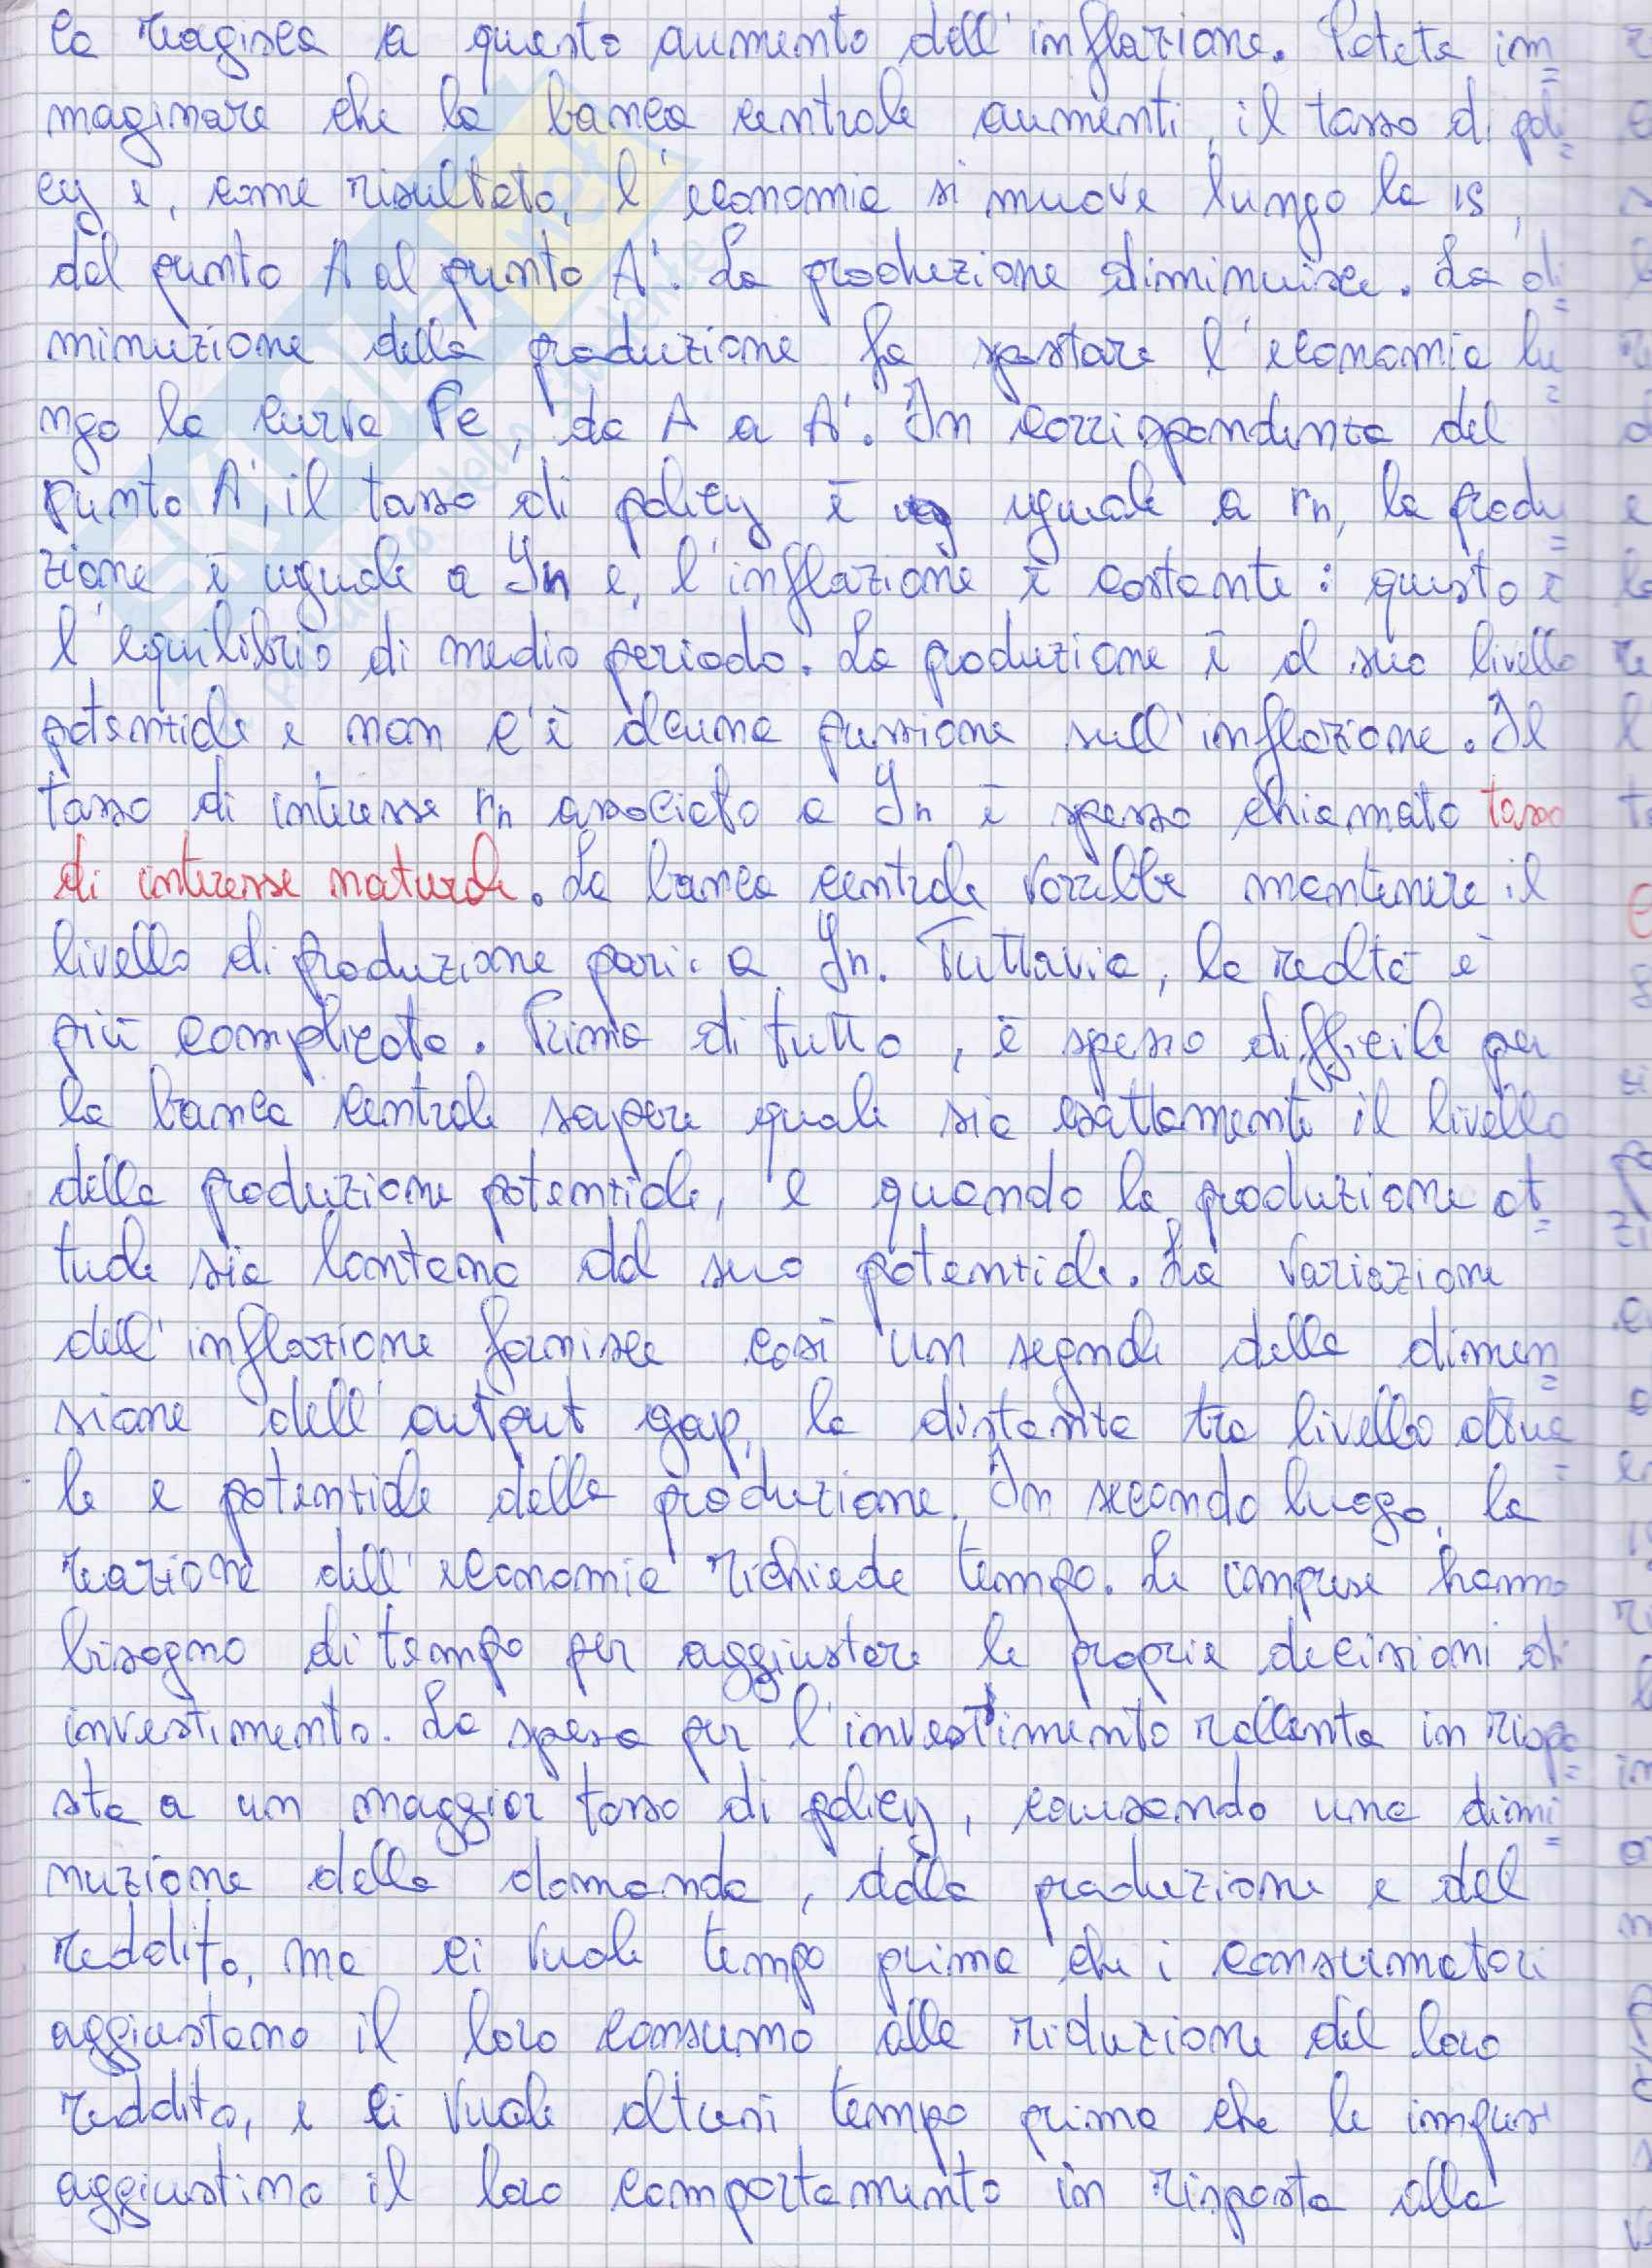 ca reagisca a questo aumento dell'inflazione. Potete im=
maginare che la banca centrale aumenti il tasso di poli=
cy e, come risultato, l'economia si muove lungo la IS,
dal punto A al punto A'. La produzione diminuisce. La di=
minuzione della produzione fa spostare l'economia lu=
ngo la curva PC, da A a A'. In corrispondenza del
punto A', il tasso di policy è uguale a rn, la produ=
zione è uguale a Yn e, l'inflazione è costante: questo è
l'equilibrio di medio periodo. La produzione è al suo livello
potenziale e non c'è alcuna pressione sull'inflazione. Il
tasso di interesse rn associato a Yn è spesso chiamato tasso
di interesse naturale. La banca centrale vorrebbe mantenere il
livello di produzione pari a Yn. Tuttavia, la realtà è
più complicata. Prima di tutto, è spesso difficile per
la banca centrale sapere quale sia esattamente il livello
della produzione potenziale, e quando la produzione at=
tuale sia lontana dal suo potenziale. La variazione
dell'inflazione fornisce così un segnale della dimen=
sione dell'output gap, la distanza tra livello attua=
le e potenziale della produzione. In secondo luogo, la
reazione dell'economia richiede tempo. Le imprese hanno
bisogno di tempo per aggiustare le proprie decisioni di
investimento. La spesa per l'investimento rallenta in rispo=
sta a un maggior tasso di policy, causando una dimi=
nuzione della domanda, della produzione e del
reddito, ma ci vuole tempo prima che i consumatori
aggiustano il loro consumo alla riduzione del loro
reddito, e ci vuole altresì tempo prima che le imprese
aggiustino il loro comportamento in risposta alla